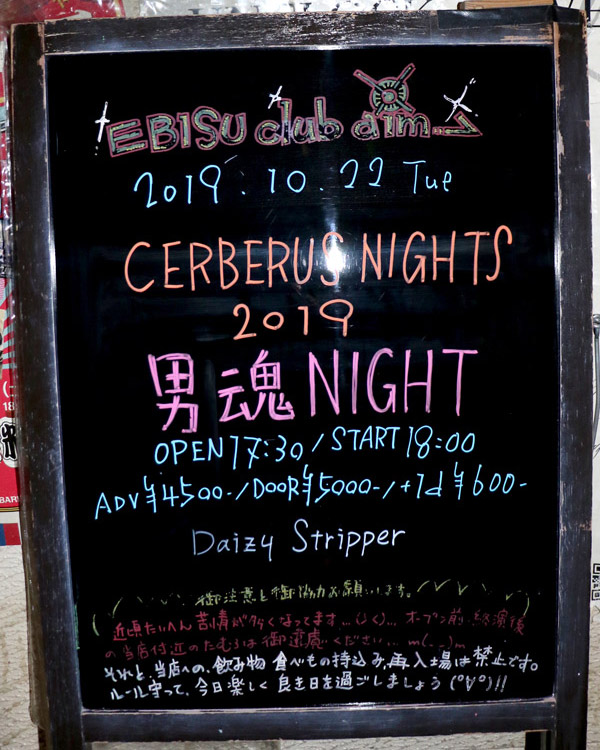 EBISU club aim...
2019.10.22 Tue
CERBERUS NIGHTS
2019
男魂NIGHT
OPEN17:30/START18:00
ADV¥4500-/DOOR¥5000-/+1d¥600-
Daizy Stripper
御注意と御協力お願いします。
近頃たいへん苦情が多くなってます...(>_<)... オープン前、終演後
の当店付近のたむろは御遠慮ください... m(_ _)m
それと、当店への、飲み物 食べもの持込み、再入場は禁止です。
ルール守って、今日楽しく良き日を過ごしましょう(°∀°)!!